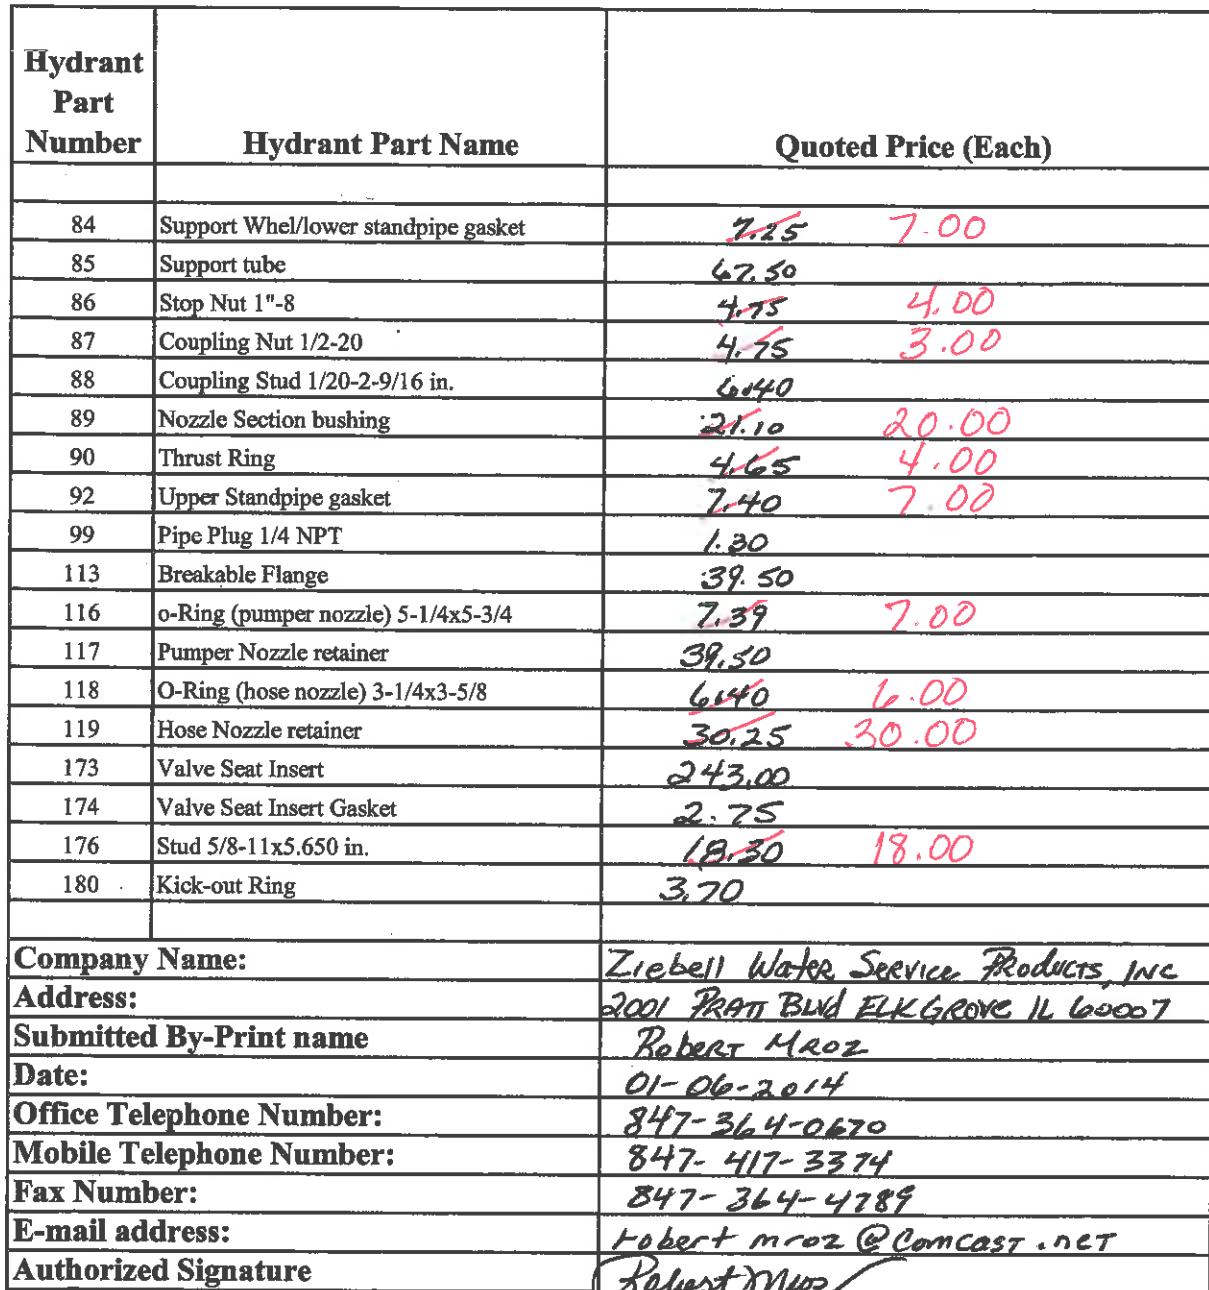 Hydrant Part Number | Hydrant Part Name | Quoted Price (Each)
84 | Support Whel/lower standpipe gasket | 7.25 7.00
85 | Support tube | 67.50
86 | Stop Nut 1"-8 | 4.75 4.00
87 | Coupling Nut 1/2-20 | 4.75 3.00
88 | Coupling Stud 1/20-2-9/16 in. | 6.40
89 | Nozzle Section bushing | 21.10 20.00
90 | Thrust Ring | 4.65 4.00
92 | Upper Standpipe gasket | 7.40 7.00
99 | Pipe Plug 1/4 NPT | 1.30
113 | Breakable Flange | 39.50
116 | o-Ring (pumper nozzle) 5-1/4x5-3/4 | 7.39 7.00
117 | Pumper Nozzle retainer | 39.50
118 | O-Ring (hose nozzle) 3-1/4x3-5/8 | 6.40 6.00
119 | Hose Nozzle retainer | 30.25 30.00
173 | Valve Seat Insert | 243.00
174 | Valve Seat Insert Gasket | 2.75
176 | Stud 5/8-11x5.650 in. | 18.30 18.00
180 | Kick-out Ring | 3.70
Company Name: Ziebell Water Service Products, Inc
Address: 2001 Pratt Blvd Elk Grove IL 60007
Submitted By-Print name Robert Mroz
Date: 01-06-2014
Office Telephone Number: 847-364-0670
Mobile Telephone Number: 847-417-3374
Fax Number: 847-364-4789
E-mail address: robert mroz @ Comcast.net
Authorized Signature Robert Mroz